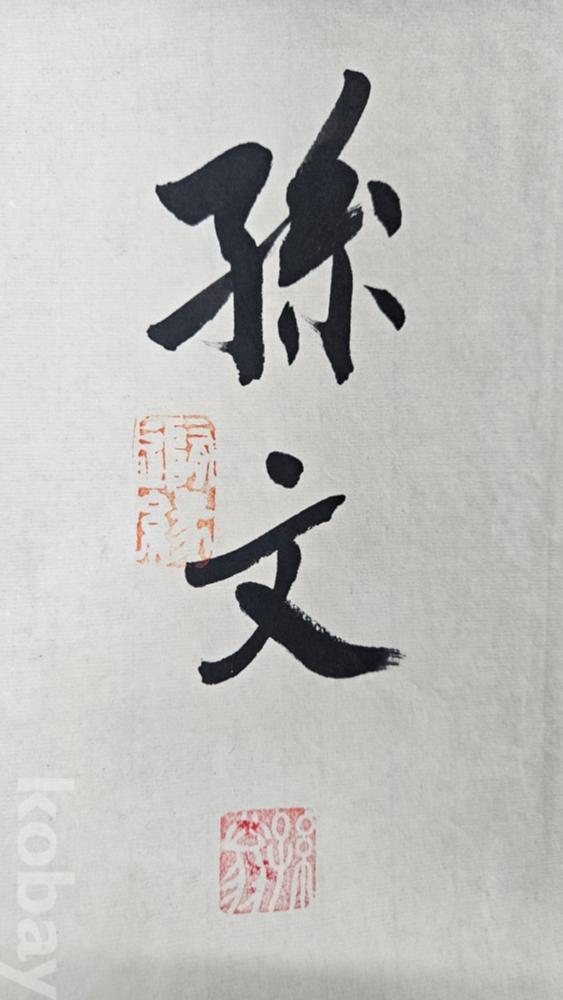 孫文
kobay